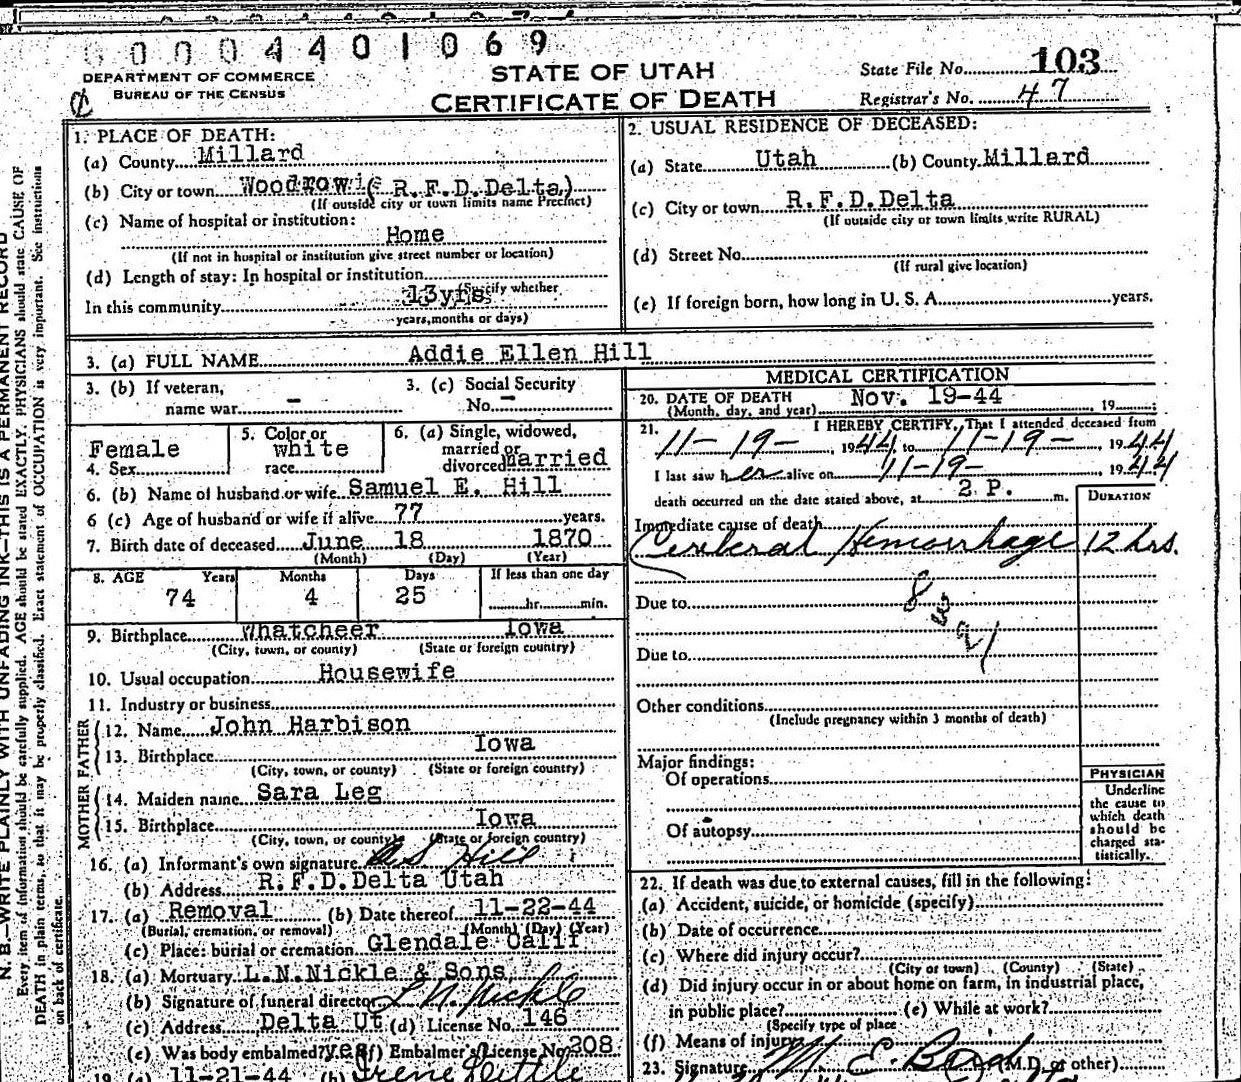 00004401069
DEPARTMENT OF COMMERCE
BUREAU OF THE CENSUS
STATE OF UTAH
CERTIFICATE OF DEATH
State File No. 103
Registrar's No. 47
N. B.—WRITE PLAINLY WITH UNFADING INK—THIS IS A PERMANENT RECORD
Every item of information should be carefully supplied. AGE should be stated EXACTLY. PHYSICIANS should state CAUSE OF
DEATH in plain terms, so that it may be properly classified. Exact statement of OCCUPATION is very important. See instructions
on back of certificate.
1. PLACE OF DEATH:
(a) County Millard
(b) City or town Woodrow ( R.F.D.Delta)
(If outside city or town limits name Precinct)
(c) Name of hospital or institution:
Home
(If not in hospital or institution give street number or location)
(d) Length of stay: In hospital or institution
(Specify whether
In this community 13yrs
years, months or days)
2. USUAL RESIDENCE OF DECEASED:
(a) State Utah (b) County Millard
(c) City or town R.F.D.Delta
(If outside city or town limits write RURAL)
(d) Street No.
(If rural give location)
(e) If foreign born, how long in U. S. A. years.
3. (a) FULL NAME Addie Ellen Hill
3. (b) If veteran, 3. (c) Social Security
name war - No. -
Female 5. Color or white 6. (a) Single, widowed,
4. Sex race married or
divorced married
6. (b) Name of husband or wife Samuel E. Hill
6 (c) Age of husband or wife if alive 77 years.
7. Birth date of deceased June 18 1870
(Month) (Day) (Year)
8. AGE Years Months Days If less than one day
74 4 25 hr. min.
9. Birthplace Whatcheer Iowa
(City, town, or county) (State or foreign country)
10. Usual occupation Housewife
11. Industry or business
FATHER
12. Name John Harbison
13. Birthplace Iowa
(City, town, or county) (State or foreign country)
MOTHER
14. Maiden name Sara Leg
15. Birthplace Iowa
(City, town, or county) (State or foreign country)
16. (a) Informant's own signature Hill
(b) Address R.F.D.Delta Utah
17. (a) Removal (b) Date thereof 11-22-44
(Burial, cremation, or removal) (Month) (Day) (Year)
(c) Place: burial or cremation Glendale Calif
18. (a) Mortuary L.N.Nickle & Sons
(b) Signature of funeral director L N Nickle
(c) Address Delta Ut (d) License No. 146
(e) Was body embalmed? yes (f) Embalmer's License No. 208
19. (a) 11-21-44 (b) Irene
MEDICAL CERTIFICATION
20. DATE OF DEATH Nov. 19-44
(Month, day, and year) , 19 ;
21. I HEREBY CERTIFY, That I attended deceased from
11-19-, 1944, to 11-19-, 1944
I last saw her alive on 11-19-, 1944
death occurred on the date stated above, at 2 P. m. DURATION
Immediate cause of death
Cerebral Hemorrhage 12 hrs.
Due to
Due to
Other conditions
(Include pregnancy within 3 months of death)
Major findings:
Of operations
Of autopsy
PHYSICIAN
Underline
the cause to
which death
should be
charged sta-
tistically.
22. If death was due to external causes, fill in the following:
(a) Accident, suicide, or homicide (specify)
(b) Date of occurrence
(c) Where did injury occur?
(City or town) (County) (State)
(d) Did injury occur in or about home on farm, in industrial place,
in public place? (e) While at work?
(Specify type of place
(f) Means of injury
23. Signature M. E. Bird (M.D. or other)